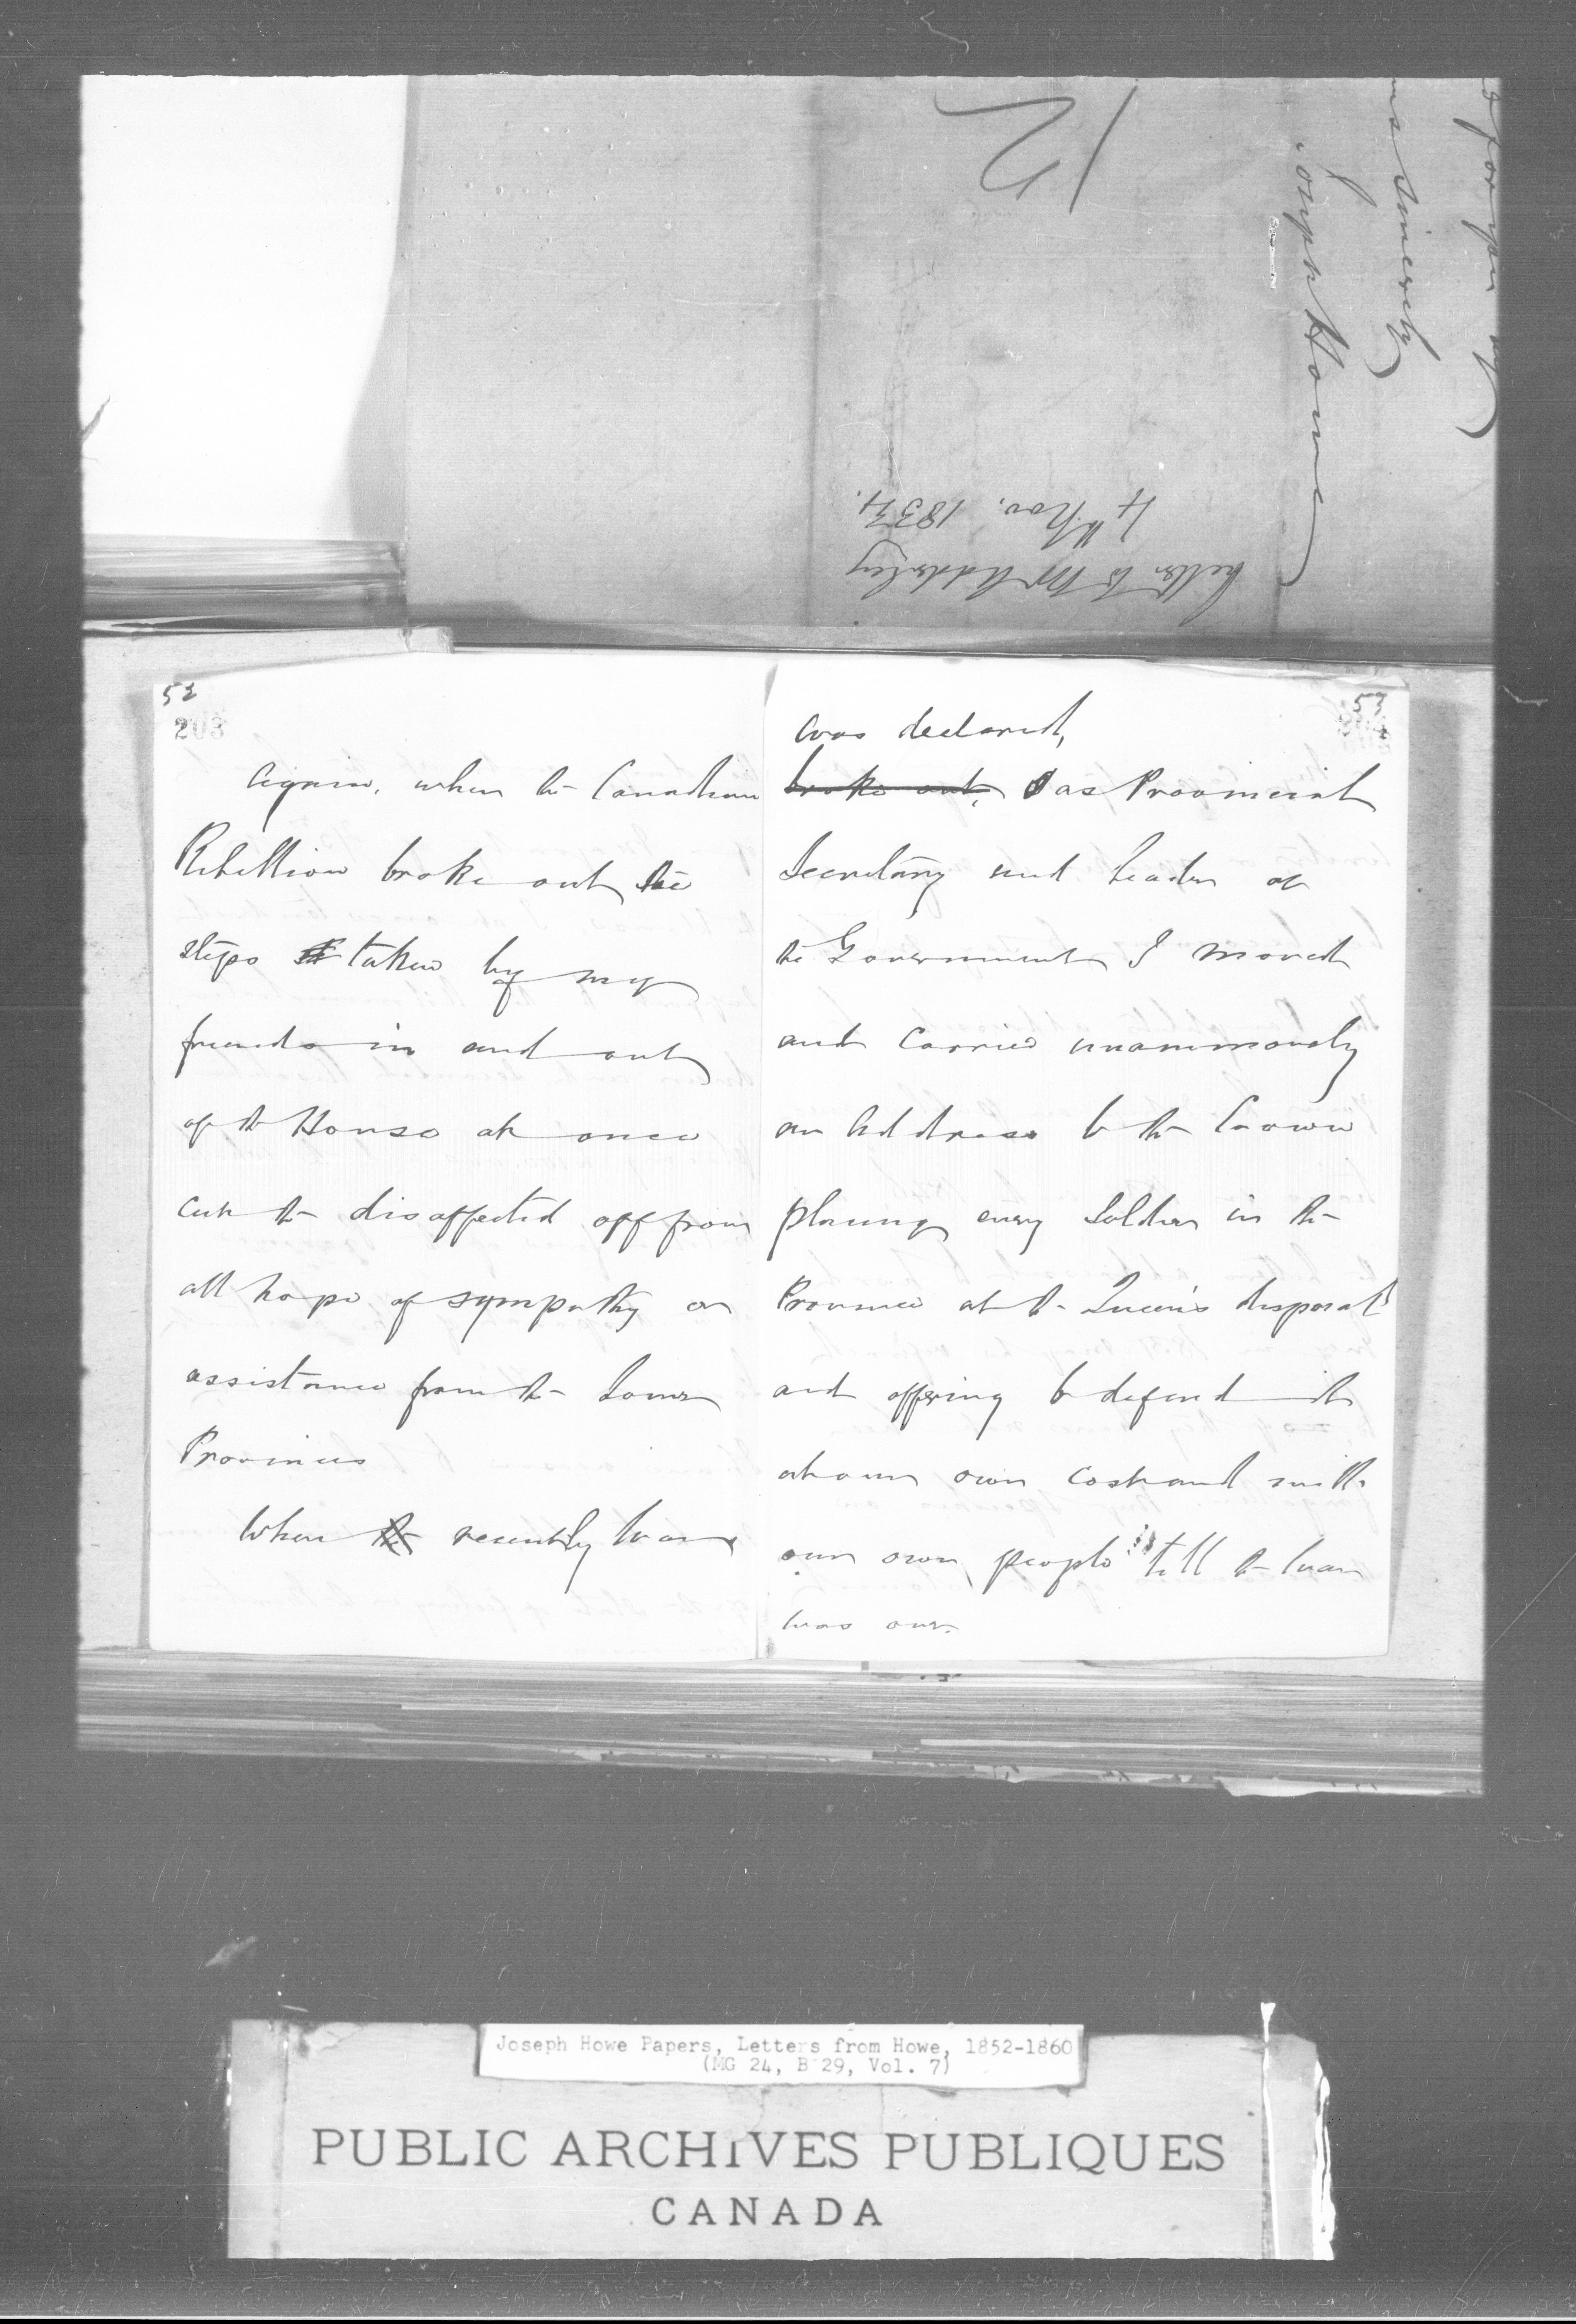 12
for you
sincerely
Joseph Howe
Letter to Mr Adderley
4th Nov. 1834.
52
203
Again, when the Canadian
Rebellion broke out, the
steps taken by my
friends in and out
of the House at once
cut the disaffected off from
all hope of sympathy or
assistance from the Lower
Provinces
When the recently War
53
was declared,
broke out, I as Provincial
Secretary and Leader of
the Government I moved
and carried unanimously
an Address to the Crown
placing every Soldier in the
Province at the Queen's disposal
and offering to defend it
at our own cost and with
our own people till the war
was over.
Joseph Howe Papers, Letters from Howe, 1852-1860
(MG 24, B 29, Vol. 7)
PUBLIC ARCHIVES PUBLIQUES
CANADA